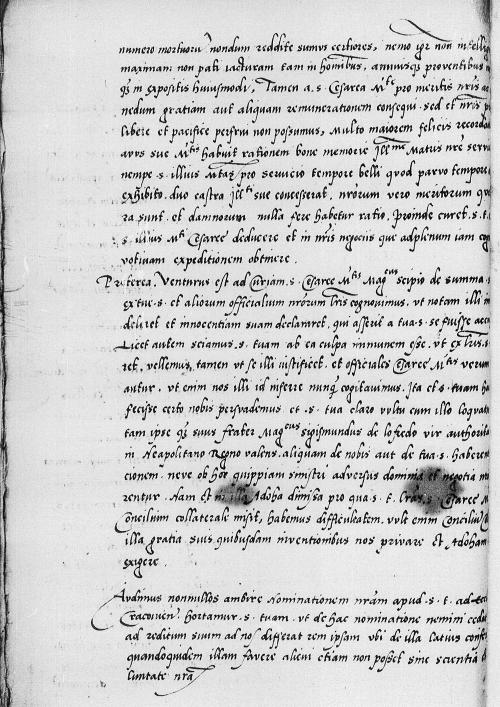 numero mortuorū nondum reddite sumus certiores, nemo igr non intellig
maximam non pati iacturam tam in hominibus, annuisq3 proventibus
q3 in expositis huiusmodi, Tamen a. s. Cesarea M^te pro meritis nris
nedum gratiam aut aliquam remunerationem consequi sed et nris
libere et pacifice perfrui non possumus, Multo maiorem felicis recorda
avus sue M^tis habuit rationem bone memorie Ill^me Matris nre
nempe s. illius M^tas pro servicio tempore belli quod parvo tempore
exhibito duo castra Ill^ti sue concesserat, nrorum vero meritorum
ra sunt et damnorum nulla fere habetur ratio. Proinde curet s. t.
s. illius M^ti Cesaree deducere et in nris negociis que adplenum iam
votivam expeditionem obtinere.
Preterea, Venturus est ad Curiam s. Cesaree M^tis Mag^cus scipio de summa
ex tue s. et aliorum officialium nrorum lris cognovimus, vt notam illi
deleret et innocentiam suam declararet, qui asserit a tua s. se fuisse
Licet autem sciamus s. tuam ab ea culpa immunem esse, vt ex lris
ret, vellemus tamen vt se illi iustificet, et officiales Cesaree M^tis verum
antur, vt enim nos illi id inferre nunq3 cogitavimus. Ita et s. tuam
fecisse certo nobis persuademus et s. tua claro vultu cum illo loqua
tam ipse q3 suus frater Mag^cus sigismundus de lofredo vir authorita
in Neapolitano Regno valens, aliquam de nobis aut de tua s. haberent
cionem, neve ob hoc quippiam sinistri adversus dominia et negotia
rentur. Nam et in illa Adoha dimissa pro qua s. t. lras s. Cesaree
Concilium collaterale misit, habemus difficultatem, vult enim Concilium
illa gratia suis quibusdam inventionibus nos privare et Adoham
exigere.
Audimus nonnullos ambire Nominationem nram apud s. t. ad
Cracovien. hortamur s. tuam vt de hac nominatione nemini
ad reditum suum ad nos differat rem ipsam vbi de illa latius
quandoquidem illam favere alicui etiam non posset sine scientia
luntate nra